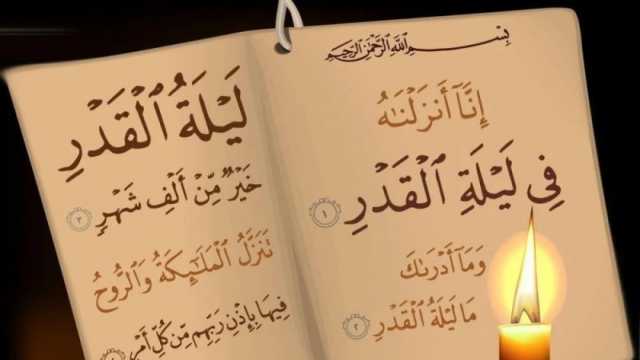 بِسْمِ اللَّهِ الرَّحْمَٰنِ الرَّحِيمِ
إِنَّآ أَنزَلْنَٰهُ
فِي لَيْلَةِ ٱلْقَدْرِ ١
وَمَآ أَدْرَىٰكَ
مَا لَيْلَةُ ٱلْقَدْرِ ٢
لَيْلَةُ ٱلْقَدْرِ
خَيْرٌ مِّنْ أَلْفِ شَهْرٍ ٣
تَنَزَّلُ ٱلْمَلَٰٓئِكَةُ وَٱلرُّوحُ
فِيهَا بِإِذْنِ رَبِّهِم مِّن كُلِّ أَمْرٍ